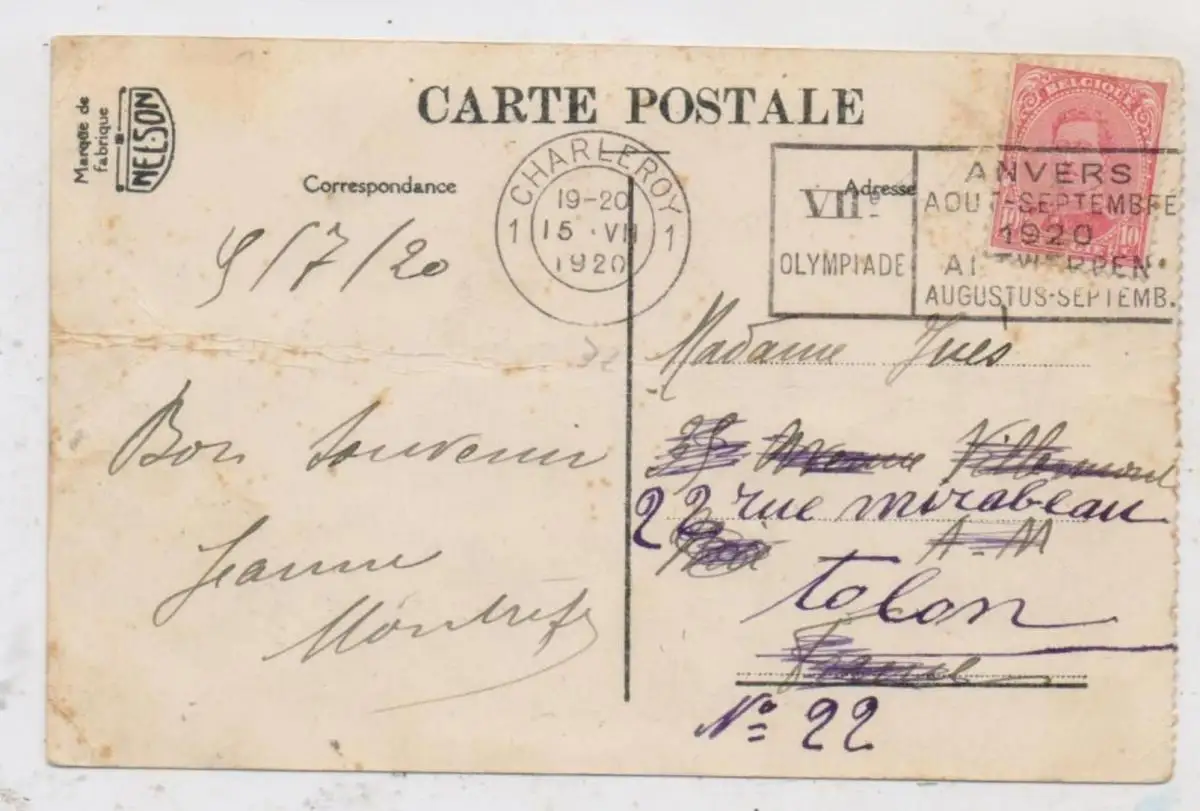 Marque de
fabrique
NELSON
CARTE POSTALE
Correspondance
Adresse
BELGIQUE
10 10
CHARLEROY
1 1
19-20
15 VII
1920
VIIe
OLYMPIADE
ANVERS
AOUT-SEPTEMBRE
1920
ANTWERPEN
AUGUSTUS-SEPTEMB.
9/7/20
Bon Souvenir
Jeanne
Madame Yves
35 Avenue
22 rue mirabeau
A-M
talon
Nº 22